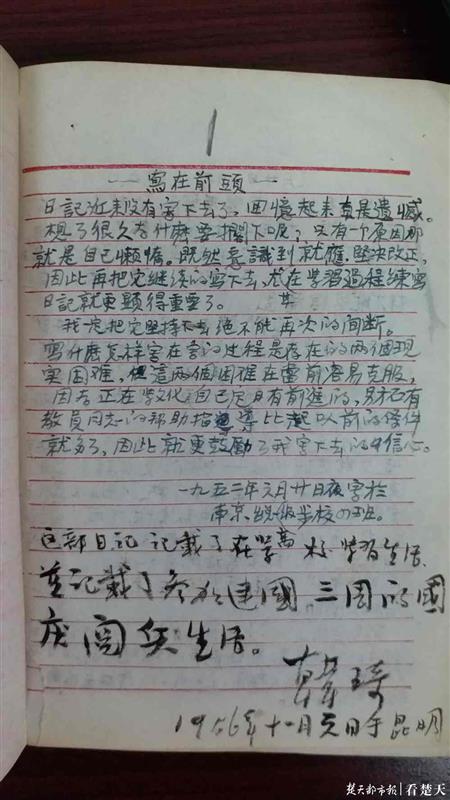 1
—寫在前頭—
日記近来没有写下去了，回憶起来真是遺憾。
想了很久为什麽要擱下呢？只有一个原因那
就是自己懒惰。既然意識到就應堅决改正，
因此再把它继续的写下去，尤其在学習过程練寫
日記就更顕得重要了。
我一定把它堅持下去绝不能再次的间断。
寫什麽怎样写在言的过程是存在的两個現
实困难，但這两個困难在目前容易克服，
因为正在学文化自己是日有前進的，另外有
教員同志的帮助指導比起以前的條件
就多了，因此就更鼓勵了我写下去的信心。
一九五二年元月廿日夜字於
南京總級步校四班。
這部日記記載了在学高 校学習生活
並記載了参加建國三周的國
庆阅兵生活。
韓琦
1956年十一月元日于昆明
楚天都市报|看楚天